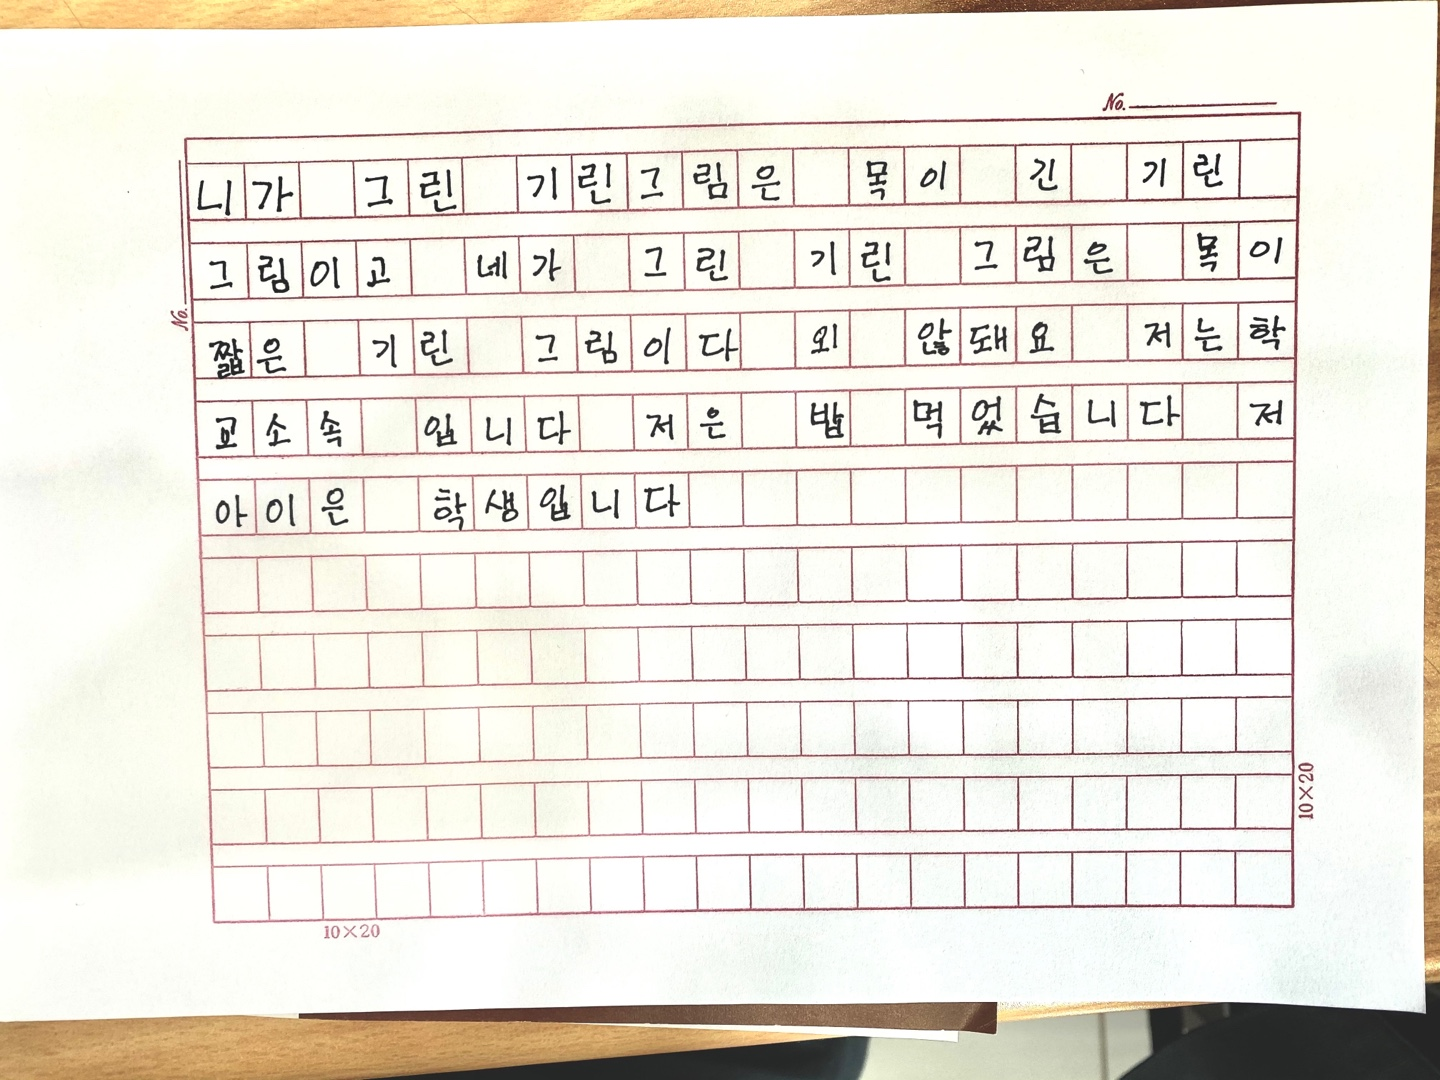 No.
니가 그린 기린그림은 목이 긴 기린
그림이고 네가 그린 기린 그림은 목이
No.
짧은 기린 그림이다 외 않돼요 저는학
교소속 입니다 저은 밥 먹었습니다 저
아이은 학생입니다
10×20
10×20